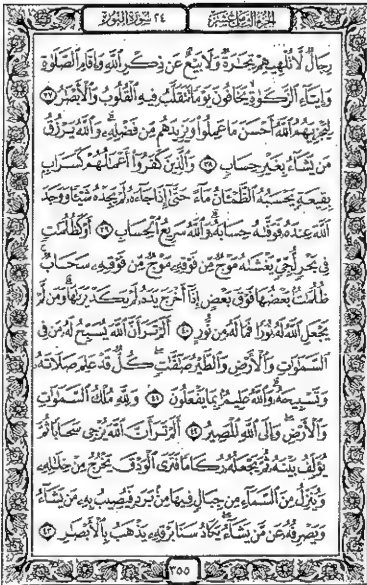 الجزء الثامن عشر ٢٤ سورة النور
رِجَالٌ لَّا تُلْهِيهِمْ تِجَٰرَةٌ وَلَا بَيْعٌ عَن ذِكْرِ ٱللَّهِ وَإِقَامِ ٱلصَّلَوٰةِ
وَإِيتَآءِ ٱلزَّكَوٰةِ يَخَافُونَ يَوْمًا تَتَقَلَّبُ فِيهِ ٱلْقُلُوبُ وَٱلْأَبْصَٰرُ ٣٧
لِيَجْزِيَهُمُ ٱللَّهُ أَحْسَنَ مَا عَمِلُوا۟ وَيَزِيدَهُم مِّن فَضْلِهِۦ وَٱللَّهُ يَرْزُقُ
مَن يَشَآءُ بِغَيْرِ حِسَابٍ ٣٨ وَٱلَّذِينَ كَفَرُوٓا۟ أَعْمَٰلُهُمْ كَسَرَابٍۭ
بِقِيعَةٍ يَحْسَبُهُ ٱلظَّمْـَٔانُ مَآءً حَتَّىٰٓ إِذَا جَآءَهُۥ لَمْ يَجِدْهُ شَيْـًٔا وَوَجَدَ
ٱللَّهَ عِندَهُۥ فَوَفَّىٰهُ حِسَابَهُۥ وَٱللَّهُ سَرِيعُ ٱلْحِسَابِ ٣٩ أَوْ كَظُلُمَٰتٍ
فِى بَحْرٍ لُّجِّىٍّ يَغْشَىٰهُ مَوْجٌ مِّن فَوْقِهِۦ مَوْجٌ مِّن فَوْقِهِۦ سَحَابٌ
ظُلُمَٰتٌۢ بَعْضُهَا فَوْقَ بَعْضٍ إِذَآ أَخْرَجَ يَدَهُۥ لَمْ يَكَدْ يَرَىٰهَا وَمَن لَّمْ
يَجْعَلِ ٱللَّهُ لَهُۥ نُورًا فَمَا لَهُۥ مِن نُّورٍ ٤٠ أَلَمْ تَرَ أَنَّ ٱللَّهَ يُسَبِّحُ لَهُۥ مَن فِى
ٱلسَّمَٰوَٰتِ وَٱلْأَرْضِ وَٱلطَّيْرُ صَٰٓفَّٰتٍ كُلٌّ قَدْ عَلِمَ صَلَاتَهُۥ
وَتَسْبِيحَهُۥ وَٱللَّهُ عَلِيمٌۢ بِمَا يَفْعَلُونَ ٤١ وَلِلَّهِ مُلْكُ ٱلسَّمَٰوَٰتِ
وَٱلْأَرْضِ وَإِلَى ٱللَّهِ ٱلْمَصِيرُ ٤٢ أَلَمْ تَرَ أَنَّ ٱللَّهَ يُزْجِى سَحَابًا ثُمَّ
يُؤَلِّفُ بَيْنَهُۥ ثُمَّ يَجْعَلُهُۥ رُكَامًا فَتَرَى ٱلْوَدْقَ يَخْرُجُ مِنْ خِلَٰلِهِۦ
وَيُنَزِّلُ مِنَ ٱلسَّمَآءِ مِن جِبَالٍ فِيهَا مِنۢ بَرَدٍ فَيُصِيبُ بِهِۦ مَن يَشَآءُ
وَيَصْرِفُهُۥ عَن مَّن يَشَآءُ يَكَادُ سَنَا بَرْقِهِۦ يَذْهَبُ بِٱلْأَبْصَٰرِ ٤٣
٣٥٥